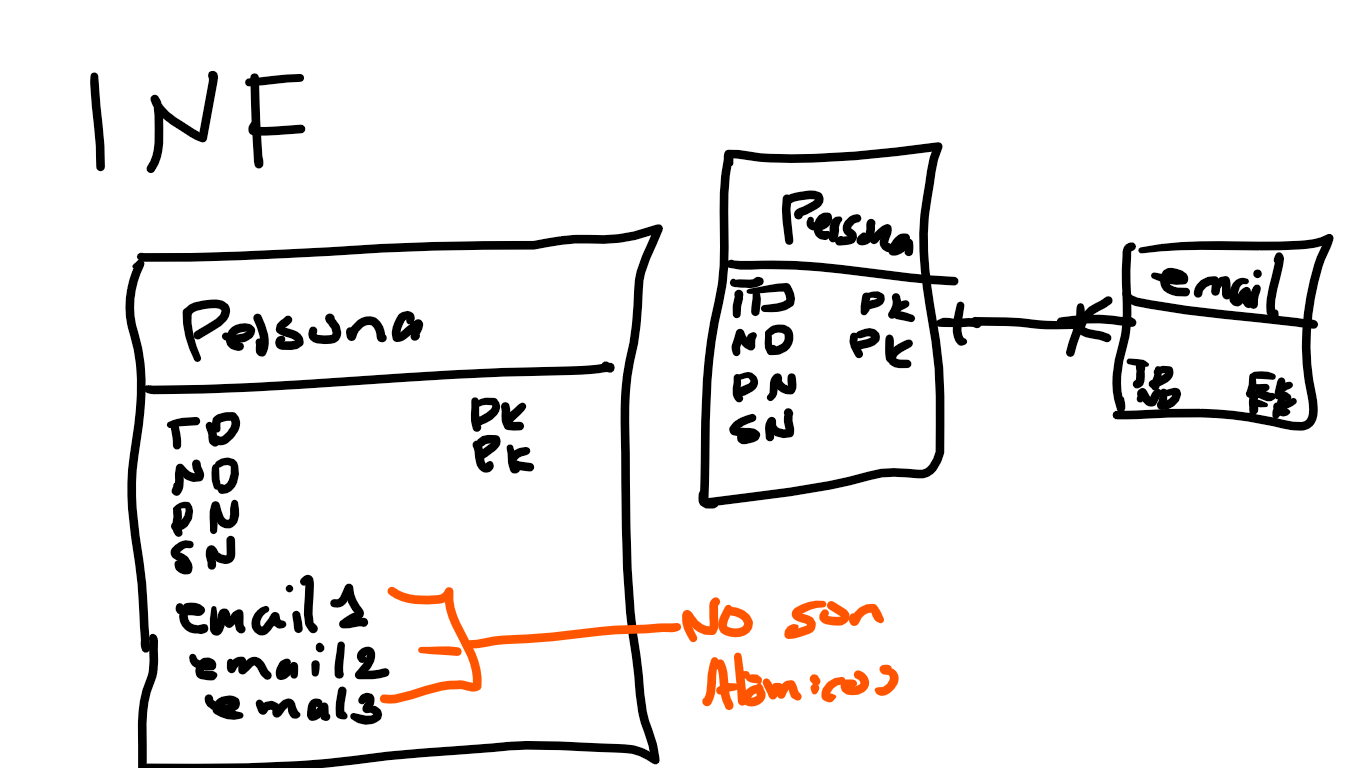 1NF
Persona
TD PK
ND PK
PN
SN
email1
email2
emal3
NO son
Atómicos
Persona
TD PK
ND PK
PN
SN
email
TD FK
ND FK